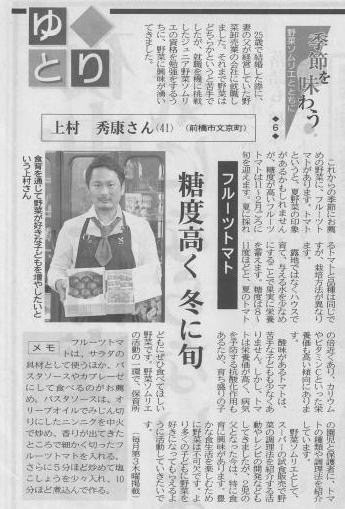 ゆとり
季節を味わう
野菜ソムリエとともに
◆6◆
25歳で結婚した際に、
妻の父が経営していた野
菜卸売業の会社に就職し
ました。それまで野菜は
どちらかというと苦手で
したが、就職を機に挑戦
したジュニア野菜ソムリ
エの資格を勉強をするう
ちに、野菜に興味が湧い
てきました。
上村 秀康さん(41)(前橋市文京町)
食育を通じて野菜が好きな子どもを増やしたいと
いう上村さん
糖度高く冬に旬
フルーツトマト
これからの季節にお薦
めの野菜に、フルーツト
マトがあります。トマト
というと、夏野菜の印象
があるかもしれません
が、糖度が高いフルーツ
トマトは11〜2月ごろに
旬を迎えます。夏に採れ
るトマトと品種は同じで
すが、栽培方法が異なり
ます。
露地ではなくハウスで
育て、与える水を少なめ
にすることで果実に栄養
を蓄えます。糖度は8〜
11度ほどと、夏のトマト
の倍近くあり、カリウム
やビタミンCといった栄
養価も高い傾向にありま
す。
酸味があるトマトは、
苦手な子どもも少なくあ
りません。しかし、トマ
トは栄養価が高く、病気
を予防する抗酸化作用も
あるため、育ち盛りの子
どもにぜひ食べてほしい
野菜です。野菜ソムリエ
の活動の一環で、保育所
の園児と保護者に、トマ
トの種類や調理法を紹介
しています。
野菜ソムリエとして、
スーパーの試食販売で野
菜の調理法を紹介する活
動やレシピの開発なども
してきましたが、2児の
父となった今は、特に食
育に興味があります。豊
かな食生活を楽しむため
に野菜は不可欠です。よ
り多くの子どもに野菜を
好きになってもらえるよ
うに活動していきたいで
す。
(毎月第3木曜掲載)
メモ
フルーツトマ
トは、サラダの
具材として使うほか、パ
スタソースやカプレーゼ
にして食べるのがお薦
め。パスタソースは、オ
リーブオイルでみじん切
りにしたニンニクを中火
で炒め、香りが出てきた
ところで細かく切ったフ
ルーツトマトを入れる。
さらに5分ほど炒めて塩
こしょうを少々入れ、10
分ほど煮込んで作る。